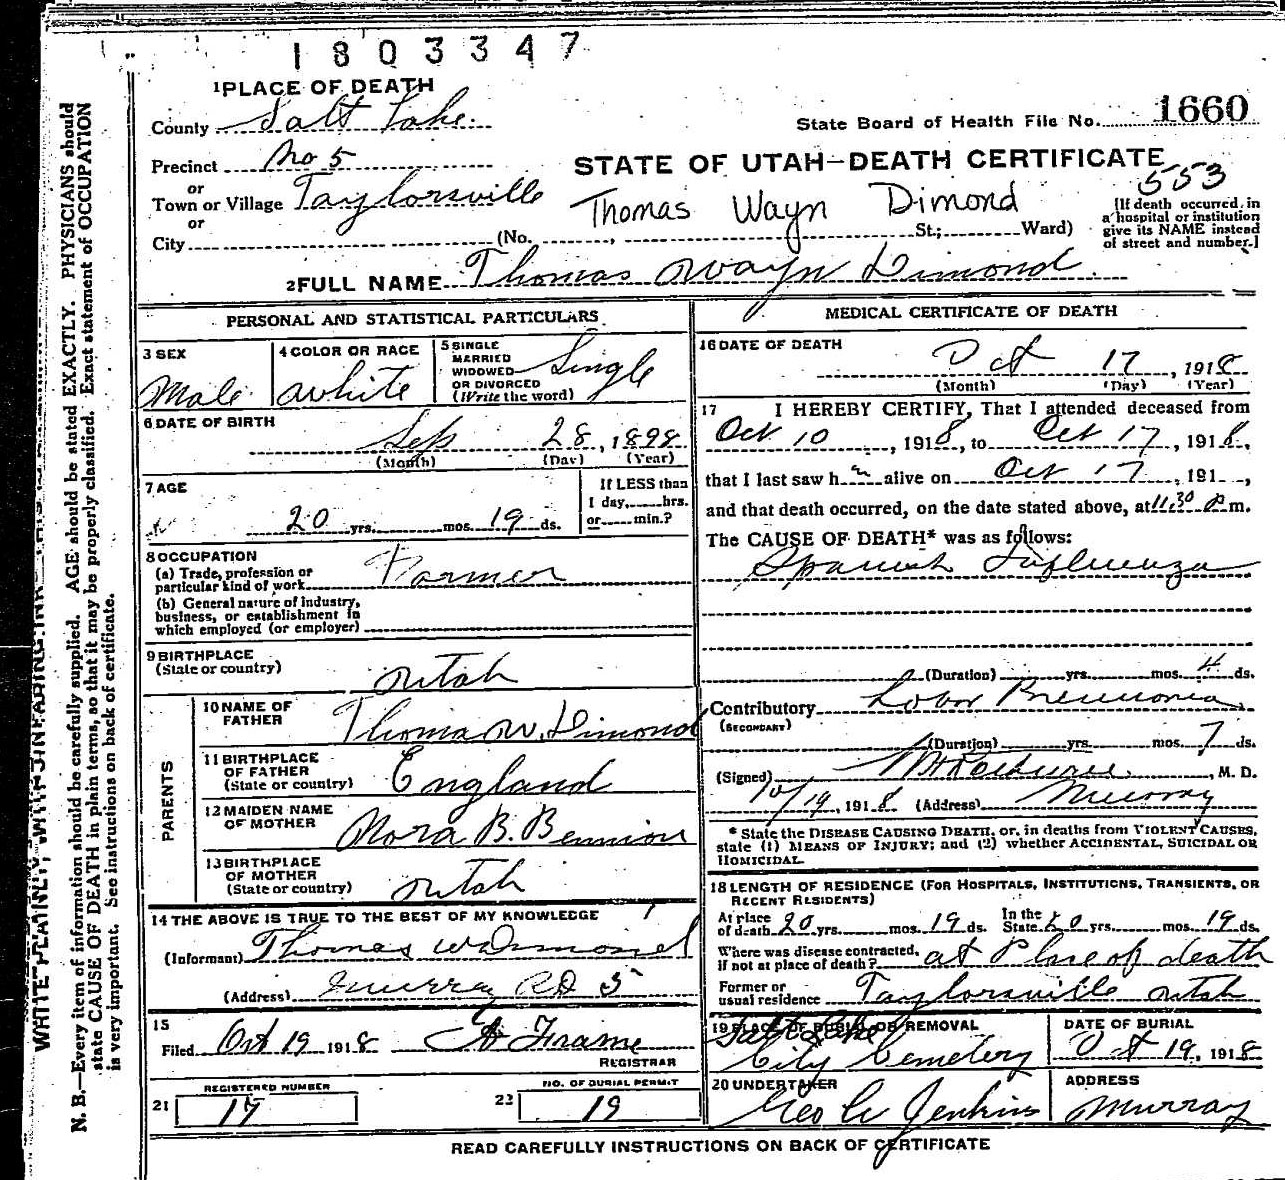 1803347
1 PLACE OF DEATH
County Salt Lake.
State Board of Health File No. 1660
Precinct No 5
STATE OF UTAH—DEATH CERTIFICATE
553
or
Town or Village Taylorsville
Thomas Wayn Dimond
or
City (No. , St.; Ward)
[If death occurred in
a hospital or institution
give its NAME instead
of street and number.]
2 FULL NAME Thomas Wayn Dimond.
PERSONAL AND STATISTICAL PARTICULARS
3 SEX
Male
4 COLOR OR RACE
White
5 SINGLE
MARRIED
WIDOWED
OR DIVORCED
(Write the word)
Single
6 DATE OF BIRTH
Sep 28, 1898
(Month) (Day) (Year)
7 AGE
20 yrs. mos. 19 ds.
If LESS than
1 day, hrs.
or min.?
8 OCCUPATION
(a) Trade, profession or
particular kind of work Farmer
(b) General nature of industry,
business, or establishment in
which employed (or employer)
9 BIRTHPLACE
(State or country)
Utah
PARENTS
10 NAME OF
FATHER
Thomas W. Dimond
11 BIRTHPLACE
OF FATHER
(State or country)
England
12 MAIDEN NAME
OF MOTHER
Nora B. Bennion
13 BIRTHPLACE
OF MOTHER
(State or country)
Utah
14 THE ABOVE IS TRUE TO THE BEST OF MY KNOWLEDGE
(Informant) Thomas W Dimond
(Address) Murray RD 5
15
Filed Oct 19 1918 Frame
REGISTRAR
REGISTERED NUMBER
21 17
NO. OF BURIAL PERMIT
22 19
MEDICAL CERTIFICATE OF DEATH
16 DATE OF DEATH
Oct 17, 1918
(Month) (Day) (Year)
17 I HEREBY CERTIFY, That I attended deceased from
Oct 10, 1918, to Oct 17, 1918,
that I last saw h alive on Oct 17, 191 ,
and that death occurred, on the date stated above, at 11:30 P m.
The CAUSE OF DEATH* was as follows:
Spanish Influenza
(Duration) yrs. mos. 4 ds.
Contributory Lobar Pneumonia
(SECONDARY)
(Duration) yrs. mos. 7 ds.
(Signed) , M. D.
10/19, 1918 (Address) Murray
* State the DISEASE CAUSING DEATH, or, in deaths from VIOLENT CAUSES,
state (1) MEANS OF INJURY; and (2) whether ACCIDENTAL, SUICIDAL OR
HOMICIDAL.
18 LENGTH OF RESIDENCE (FOR HOSPITALS, INSTITUTIONS, TRANSIENTS, OR
RECENT RESIDENTS)
At place
of death 20 yrs. mos. 19 ds.
In the
State 20 yrs. mos. 19 ds.
Where was disease contracted,
if not at place of death? at Place of death
Former or
usual residence Taylorsville Utah
19 PLACE OF BURIAL OR REMOVAL
Salt Lake
City Cemetery
DATE OF BURIAL
Oct 19, 1918
20 UNDERTAKER
Geo W Jenkins
ADDRESS
Murray
READ CAREFULLY INSTRUCTIONS ON BACK OF CERTIFICATE
WRITE PLAINLY, WITH UNFADING INK—THIS IS
N. B.—Every item of information should be carefully supplied. AGE should be stated EXACTLY. PHYSICIANS should
state CAUSE OF DEATH in plain terms, so that it may be properly classified. Exact statement of OCCUPATION
is very important. See instructions on back of certificate.